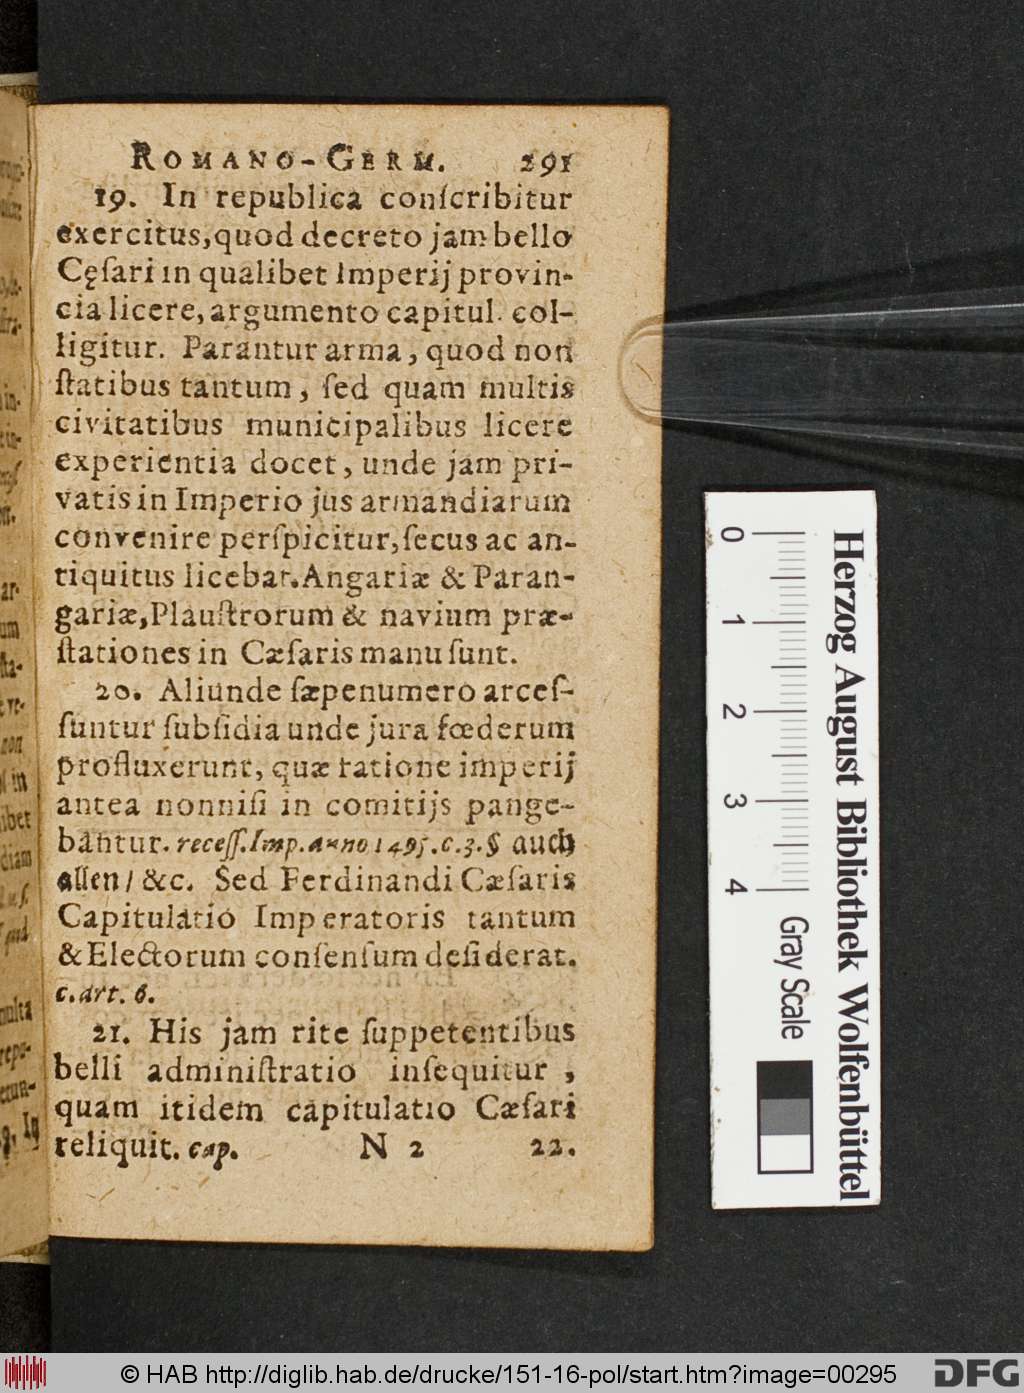 ROMANO-GERM. 291
19. In republica conſcribitur
exercitus, quod decreto jam bello
Cęſari in qualibet Imperij provin-
cia licere, argumento capitul. col-
ligitur. Parantur arma, quod non
ſtatibus tantum, ſed quam multis
civitatibus municipalibus licere
experientia docet, unde jam pri-
vatis in Imperio jus armandiarum
convenire perſpicitur, ſecus ac an-
tiquitus licebat. Angariæ & Paran-
gariæ, Plauſtrorum & navium præ-
ſtationes in Cæſaris manu ſunt.
20. Aliunde ſæpenumero arceſ-
ſuntur ſubſidia unde jura fœderum
profluxerunt, quæ ratione imperij
antea nonniſi in comitijs pange-
bantur. receſſ. Imp. anno 1495. c. 3. § auch
allen / &c. Sed Ferdinandi Cæſaris
Capitulatio Imperatoris tantum
& Electorum conſenſum deſiderat.
c. art. 6.
21. His jam rite ſuppetentibus
belli adminiſtratio inſequitur,
quam itidem capitulatio Cæſari
reliquit. cap. N 2 22.
0 1 2 3 4 Gray Scale
Herzog August Bibliothek Wolfenbüttel
© HAB http://diglib.hab.de/drucke/151-16-pol/start.htm?image=00295 DFG